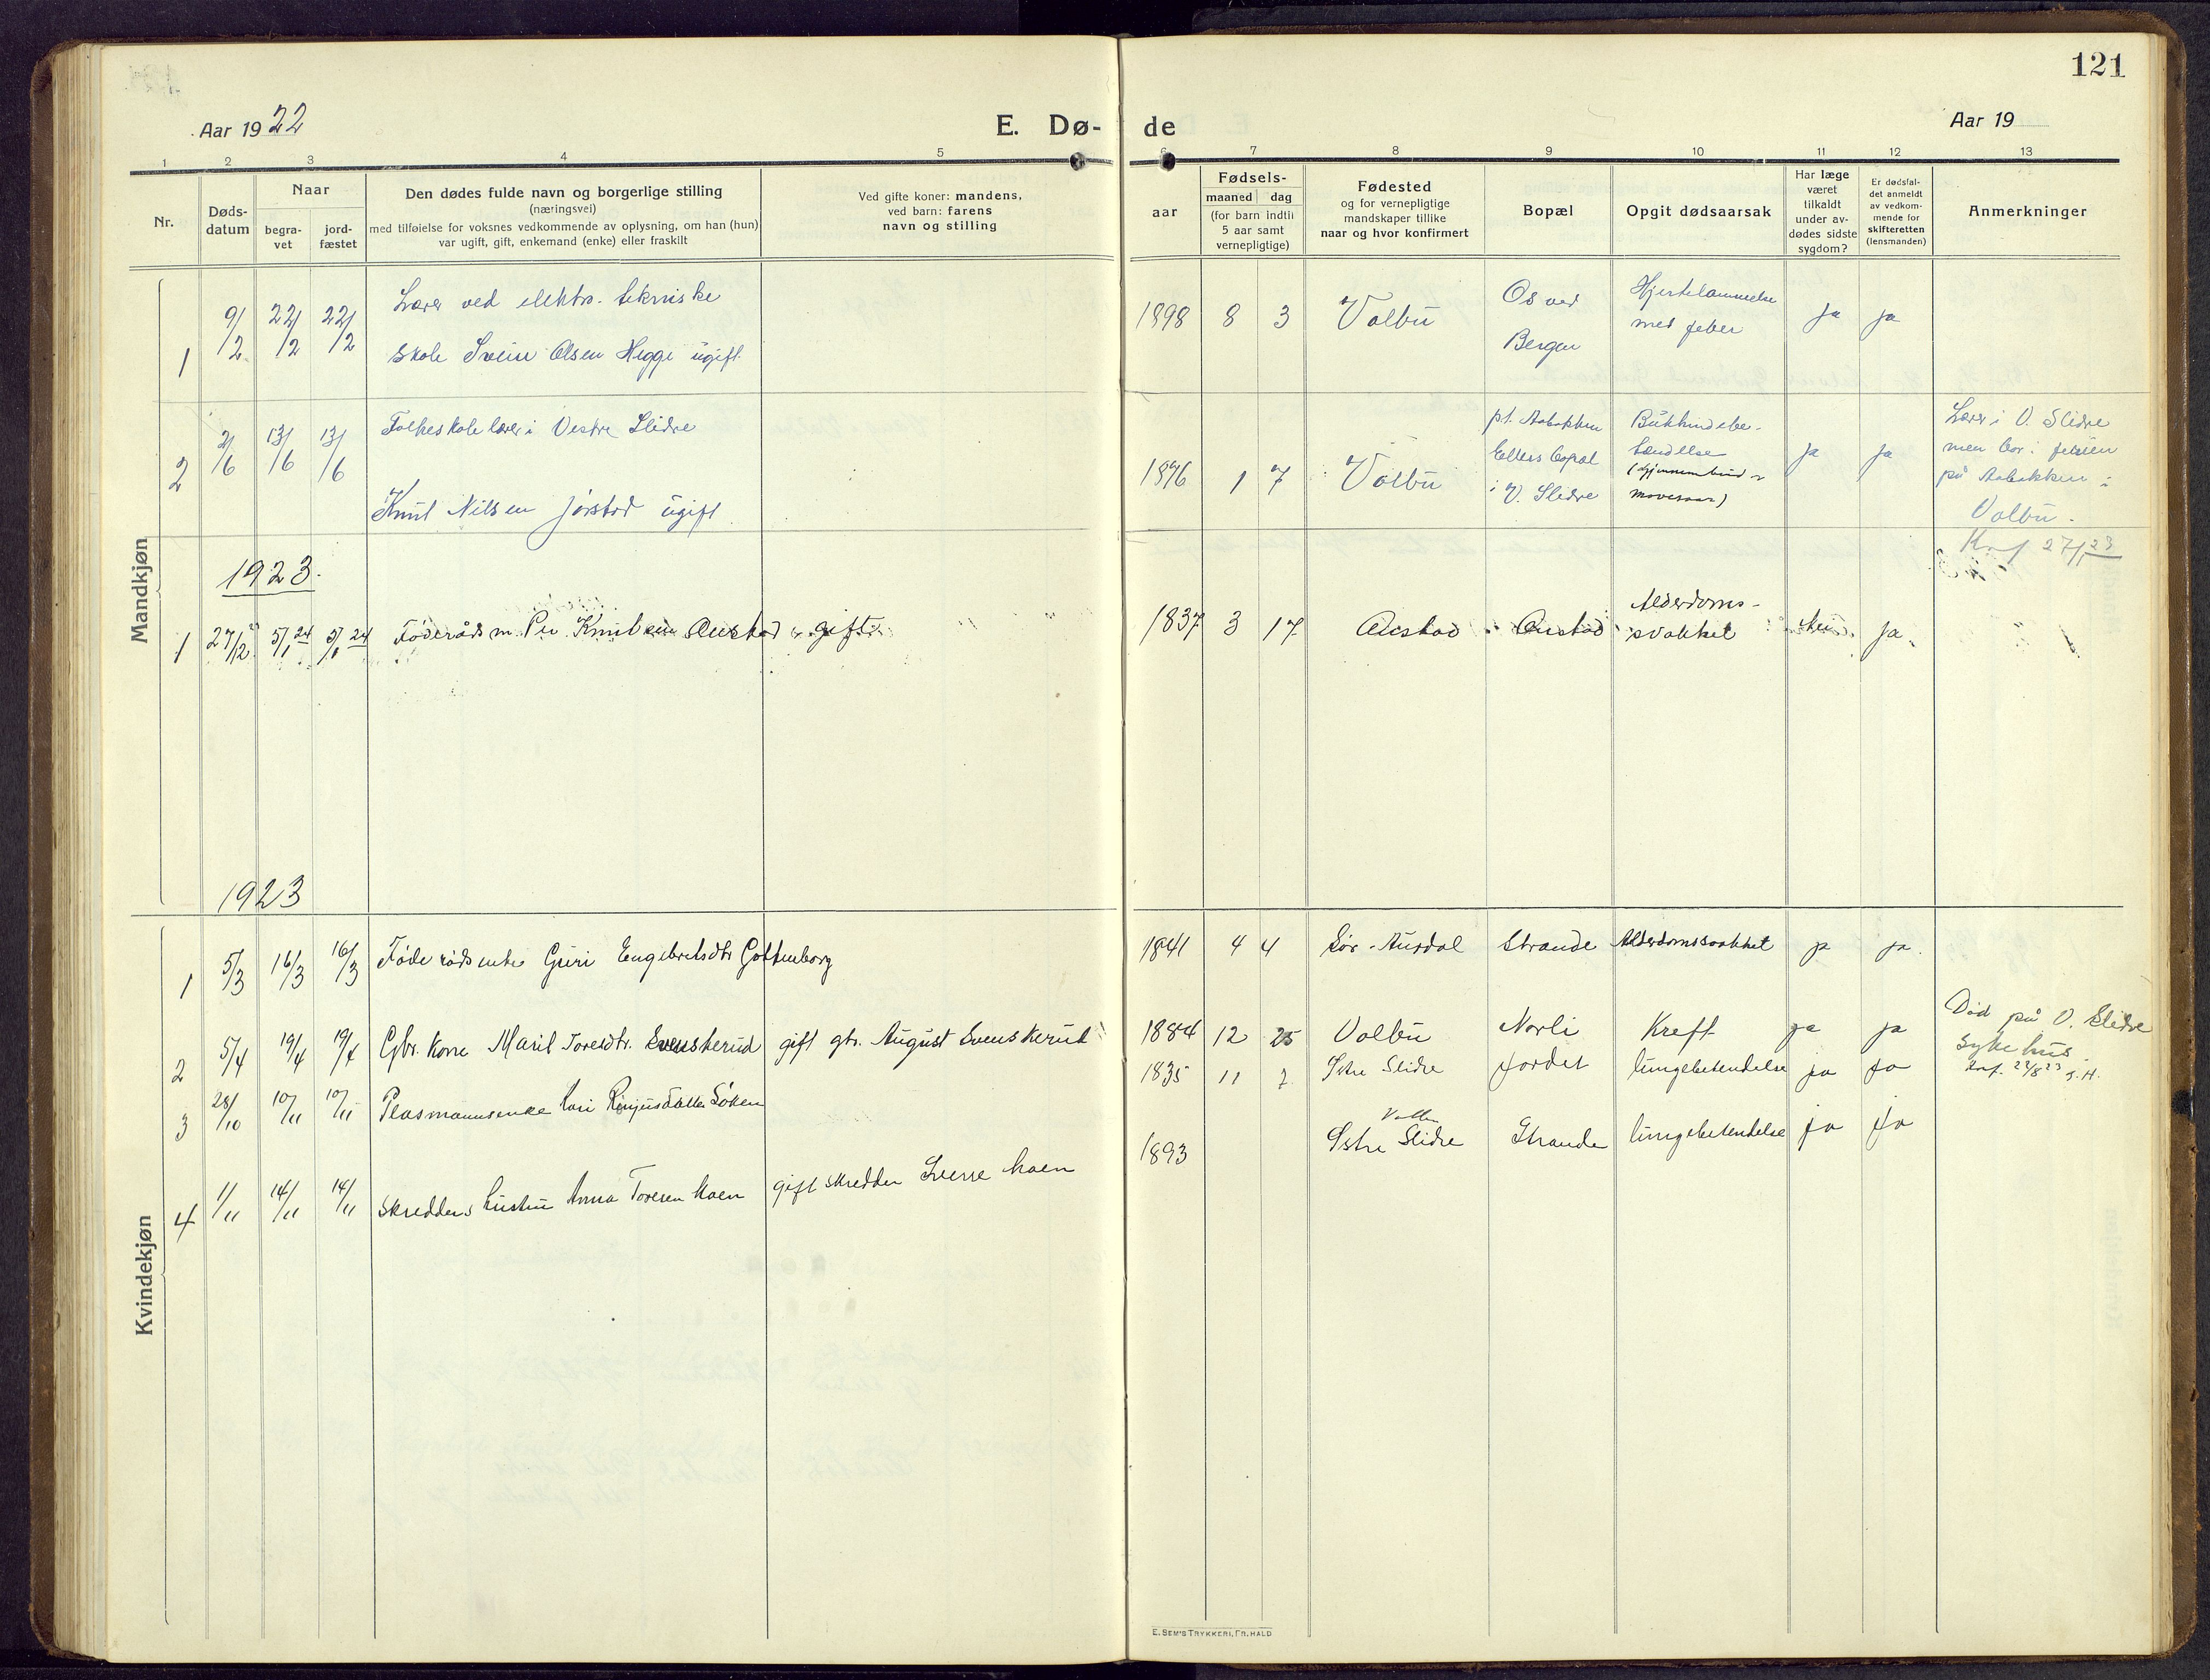 121
Aar 1922
E. Dø-
de
Aar 19
1 2 3 4 5
6 7 8 9 10 11 12 13
Nr.
Døds-
datum
Naar
begra-
vet
jord-
fæstet
Den dødes fulde navn og borgerlige stilling
(næringsvei)
med tilføielse for voksnes vedkommende av oplysning, om han (hun)
var ugift, gift, enkemand (enke) eller fraskilt
Ved gifte koner: mandens,
ved barn: farens
navn og stilling
aar
Fødsels-
maaned dag
(for barn indtil
5 aar samt
vernepligtige)
Fødested
og for vernepligtige
mandskaper tillike
naar og hvor konfirmert
Bopæl
Opgit dødsaarsak
Har læge
været
tilkaldt
under av-
dødes sidste
sygdom?
Er dødsfal-
det anmeldt
av vedkom-
mende for
skifteretten
(lensmanden)
Anmerkninger
Mandkjøn
1 9/2 22/2 22/2
Lærer ved elektro. tekniske
skole Svein Olsen Hegge ugift
1898 8 3 Volbu
Os ved
Bergen
Hjertelammelse
med feber
ja ja
2 2/6 13/6 13/6
Folkeskolelærer i Vestre Slidre
Knut Nilsen Jørstad ugift
1896 1 7 Volbu
p.t. Aabakken
Ellers bopæl
i V. Slidre
Bukhindebe-
tændelse
ja ja
Lærer i V. Slidre
men bor i ferien
på Aabakken i
Volbu.
1923.
1 27/12 5/1 24 5/1 24 Føderådsm. Per Knutsen Austad gift
1837 3 17 Austad Austad
Alderdoms-
svakket
Nei. ja.
1923
Kvindekjøn
1 5/3 16/3 16/3 Føderådsenke Guri Engebretsdtr Gottenborg
1841 4 4 Sør-Aurdal Strande Alderdomssvakket ja ja.
2 5/4 19/4 19/4 Gbr. kone Marit Toresdtr. Svenskerud gift gbr. August Svenskerud
1884 12 25 Volbu Norli Kreft ja ja
Død på V. Slidre
Sykehus.
3 28/10 10/11 10/11 Plasmannsenke Kari Datter Søken
1835 11 7 Østre Slidre Jordet lungebetendelse ja ja
4 1/11 14/11 14/11 Skredders hustru Anna Toresen Moen gift skredder Sverre Moen
1893
Volbu
Østre Slidre Strande lungebetendelse ja ja
E. SEM'S TRYKKERI, FR.HALD